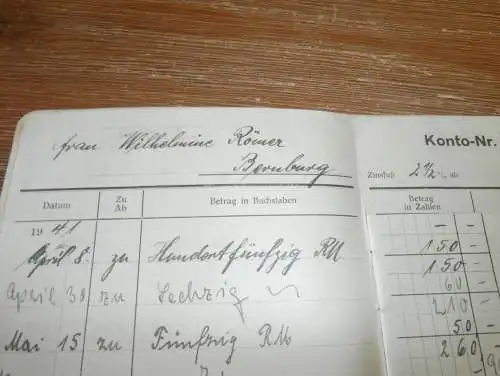 frau Wilhelmine Römer
Bernburg
Konto-Nr.
Zinsfuß 2 1/2 %, ab
Datum Zu Ab Betrag in Buchstaben Betrag in Zahlen
1941 - -
April 8. zu Hundertfünfzig RM 150 -
150 -
April 30 zu Sechzig " 60 -
210 -
Mai 15 zu Fünfzig RM 50 -
260